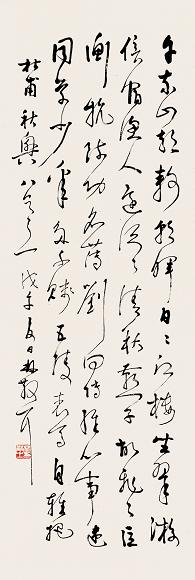 千家山郭靜朝暉日日江樓坐翠微
信宿漁人還泛泛清秋燕子故飛飛匡
衡抗疏功名薄劉向傳經心事違
同學少年多不賤五陵衣馬自輕肥
杜甫秋興八首之一 戊午夏日林散耳